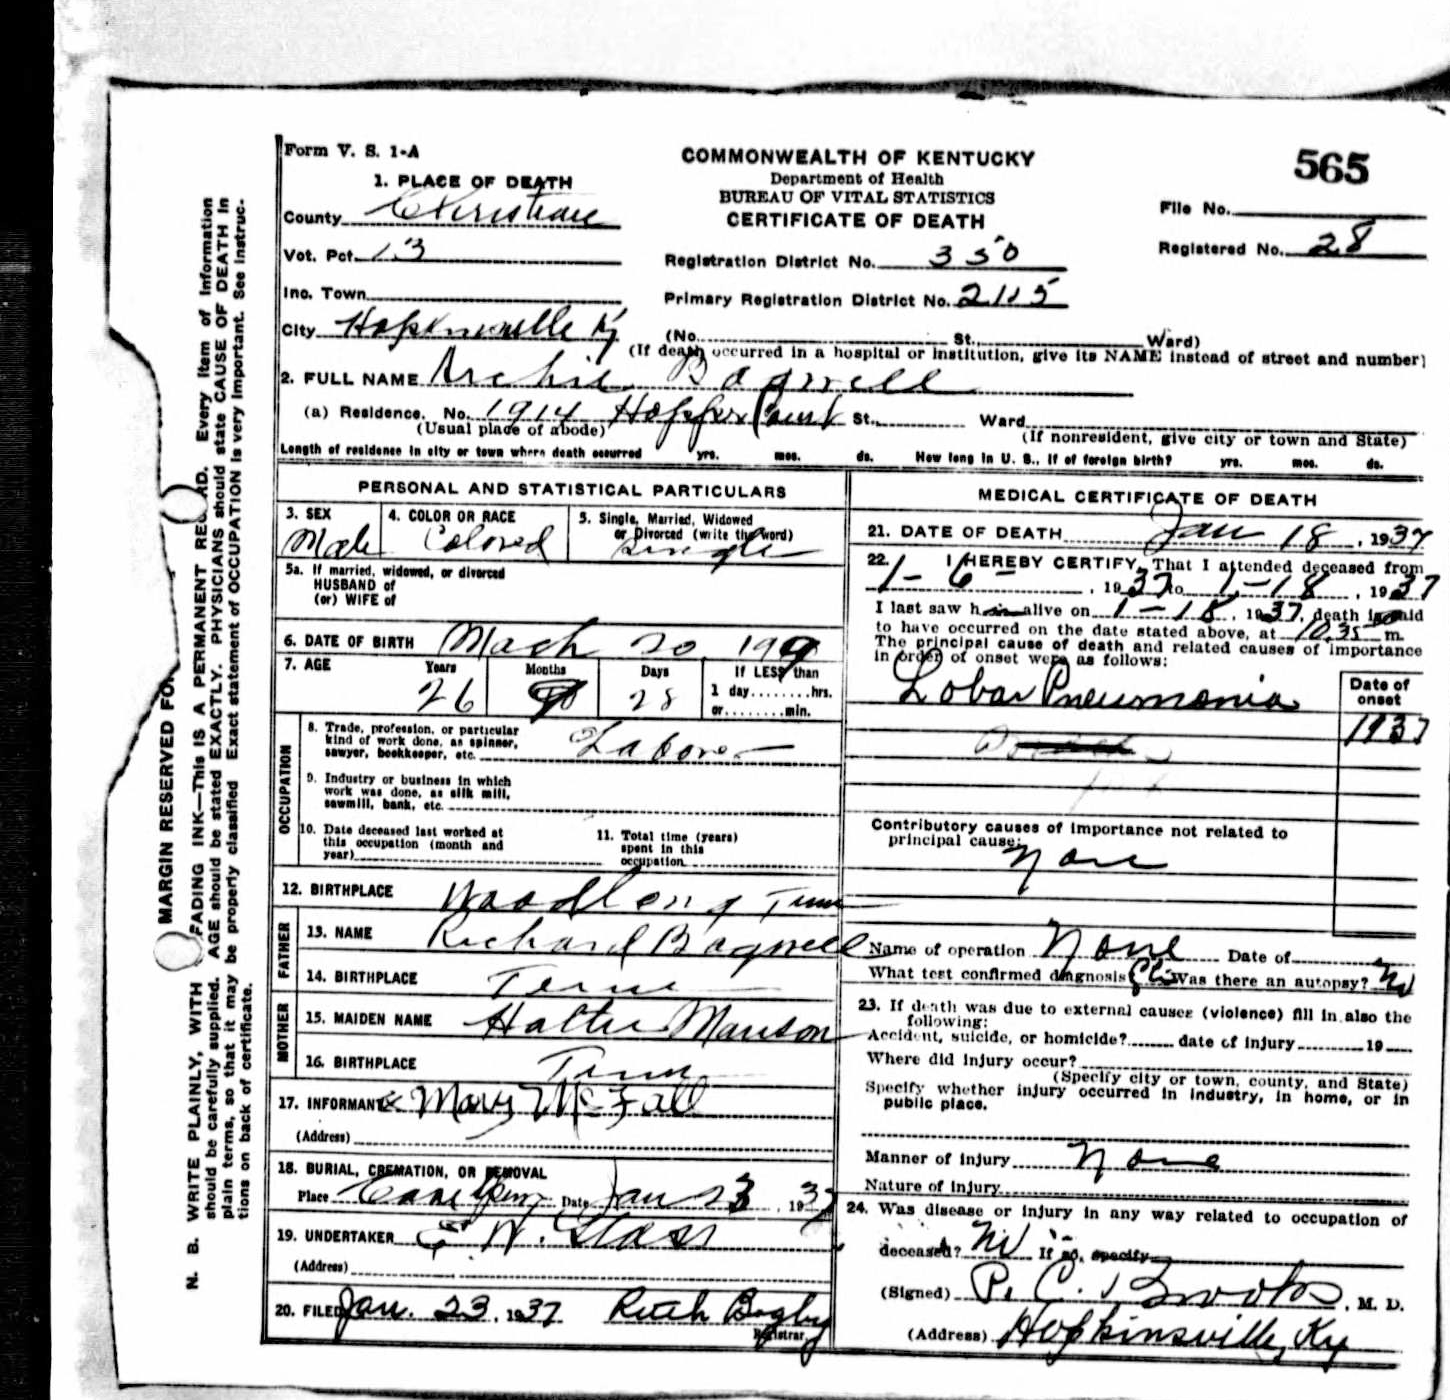 Form V. S. 1-A
COMMONWEALTH OF KENTUCKY
Department of Health
BUREAU OF VITAL STATISTICS
CERTIFICATE OF DEATH
565
File No.
Registered No. 28
1. PLACE OF DEATH
County Christian
Vot. Pct. 13
Inc. Town
City Hopkinsville Ky
Registration District No. 350
Primary Registration District No. 2115
(No. St., Ward)
(If death occurred in a hospital or institution, give its NAME instead of street and number)
2. FULL NAME Archie Bagwell
(a) Residence. No. 1914 Court St., Ward
(Usual place of abode)
(If nonresident, give city or town and State)
Length of residence in city or town where death occurred yrs. mos. ds. How long in U. S., if of foreign birth? yrs. mos. ds.
PERSONAL AND STATISTICAL PARTICULARS
3. SEX
Male
4. COLOR OR RACE
Colored
5. Single, Married, Widowed
or Divorced (write the word)
Single
5a. If married, widowed, or divorced
HUSBAND of
(or) WIFE of
6. DATE OF BIRTH Mach 20
7. AGE Years Months Days If LESS than
26 28 1 day........hrs.
or........min.
OCCUPATION
8. Trade, profession, or particular
kind of work done, as spinner,
sawyer, bookkeeper, etc. Labor
9. Industry or business in which
work was done, as silk mill,
sawmill, bank, etc.
10. Date deceased last worked at
this occupation (month and
year)
11. Total time (years)
spent in this
occupation
12. BIRTHPLACE Tenn
FATHER
13. NAME Richard Bagwell
14. BIRTHPLACE Tenn
MOTHER
15. MAIDEN NAME Manson
16. BIRTHPLACE Tenn
17. INFORMANT Mary McFall
(Address)
18. BURIAL, CREMATION, OR REMOVAL
Place Date Jan 23, 1937
19. UNDERTAKER E W. Glass
(Address)
20. FILED Jan. 23, 1937 Ruth Bagby
Registrar.
MEDICAL CERTIFICATE OF DEATH
21. DATE OF DEATH Jan 18, 1937
22. I HEREBY CERTIFY, That I attended deceased from
1-6-, 1937 to 1-18, 1937
I last saw him alive on 1-18, 1937, death is said
to have occurred on the date stated above, at 10.35 m.
The principal cause of death and related causes of importance
in order of onset were as follows:
Lobar Pneumonia
Date of
onset
1937
Contributory causes of importance not related to
principal cause:
None
Name of operation None Date of
What test confirmed diagnosis Cli Was there an autopsy? No
23. If death was due to external causes (violence) fill in also the
following:
Accident, suicide, or homicide? date of injury 19
Where did injury occur?
(Specify city or town, county, and State)
Specify whether injury occurred in industry, in home, or in
public place.
Manner of injury None
Nature of injury
24. Was disease or injury in any way related to occupation of
deceased? No If so, specify
(Signed) P. C. Brooks, M. D.
(Address) Hopkinsville, Ky
MARGIN RESERVED FOR
N. B. WRITE PLAINLY, WITH FADING INK—THIS IS A PERMANENT RECORD. Every item of information
should be carefully supplied. AGE should be stated EXACTLY. PHYSICIANS should state CAUSE OF DEATH in
plain terms, so that it may be properly classified. Exact statement of OCCUPATION is very important. See instruc-
tions on back of certificate.